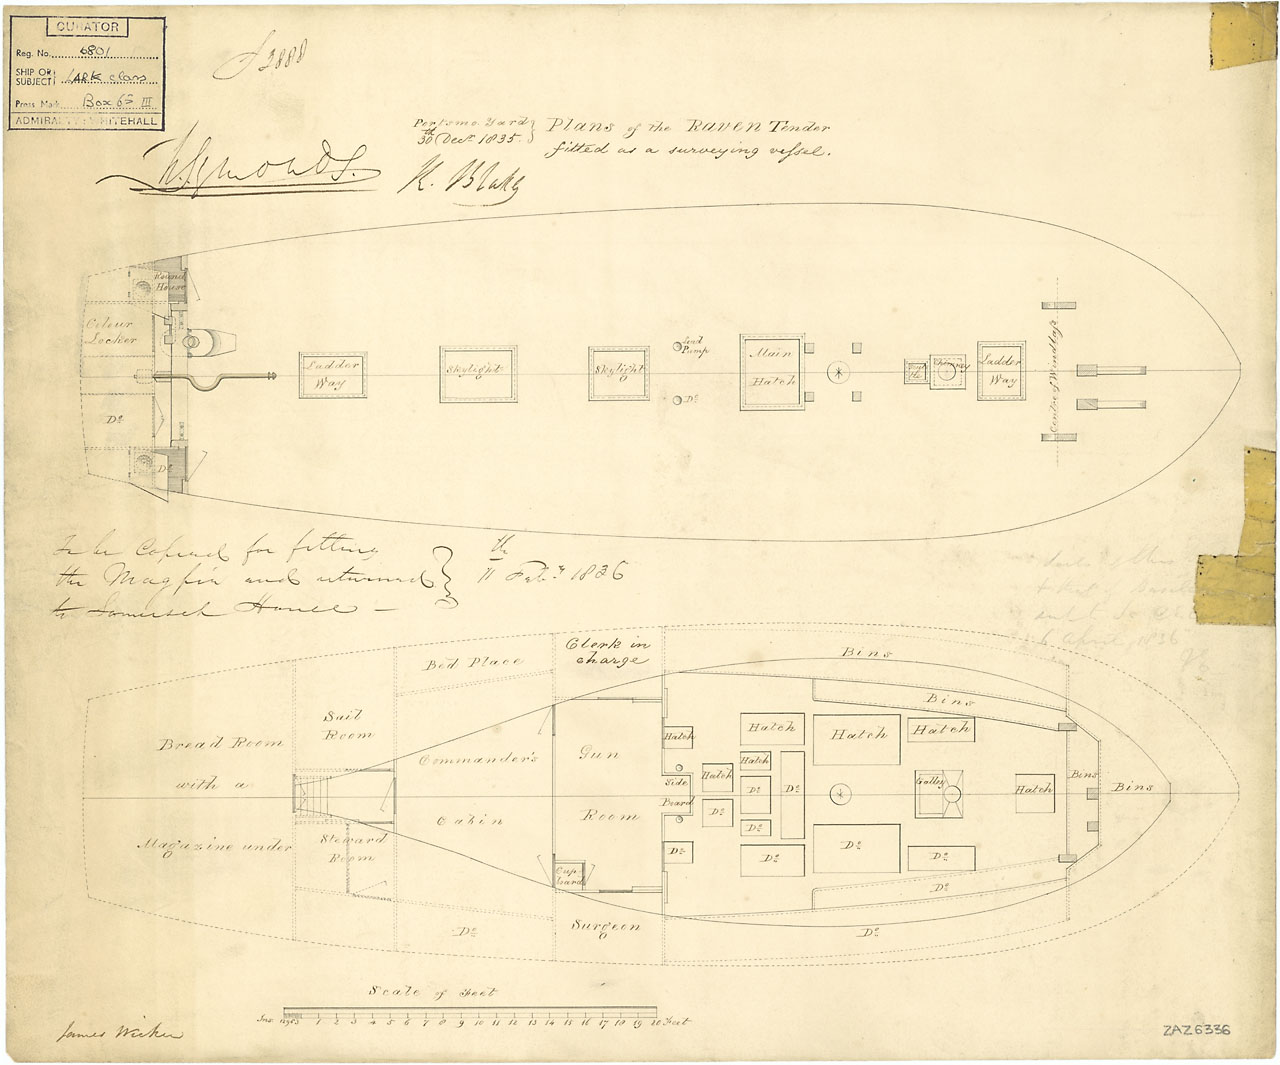 CURATOR
Reg. No. 6801
SHIP OR SUBJECT: LARK class
Press Mark Box 63 III
ADMIRALTY : WHITEHALL
J 2888
Portsmo. Yard
30th Decr. 1835.
Plans of the Raven Tender
fitted as a surveying vessel.
W. Symonds.
R. Blake
Round House
Colour Locker
Do
Do
Ladder Way
Skylight
Skylight
Hand Pump
Do
Main Hatch
Chimney
Ladder Way
Centre of Windlass
To be Copied for fitting
the Magpie and returned
to Somerset House –
11th Feby. 1836
April 1836
Bread Room
with a
Magazine under
Sail Room
Steward Room
Bed Place
Commander's
Cabin
Do
Clerk in charge
Gun
Room
Cupboard
Surgeon
Hatch
Side Board
Do
Hatch
Do
Hatch
Hatch
Do
Do
Do
Do
Hatch
Do
Hatch
Do
Galley
Hatch
Bins
Bins
Bins
Bins
Do
Do
Scale of Feet
Ins. 12 9 6 3 1 2 3 4 5 6 7 8 9 10 11 12 13 14 15 16 17 18 19 20 Feet
James Wicker
ZAZ6336